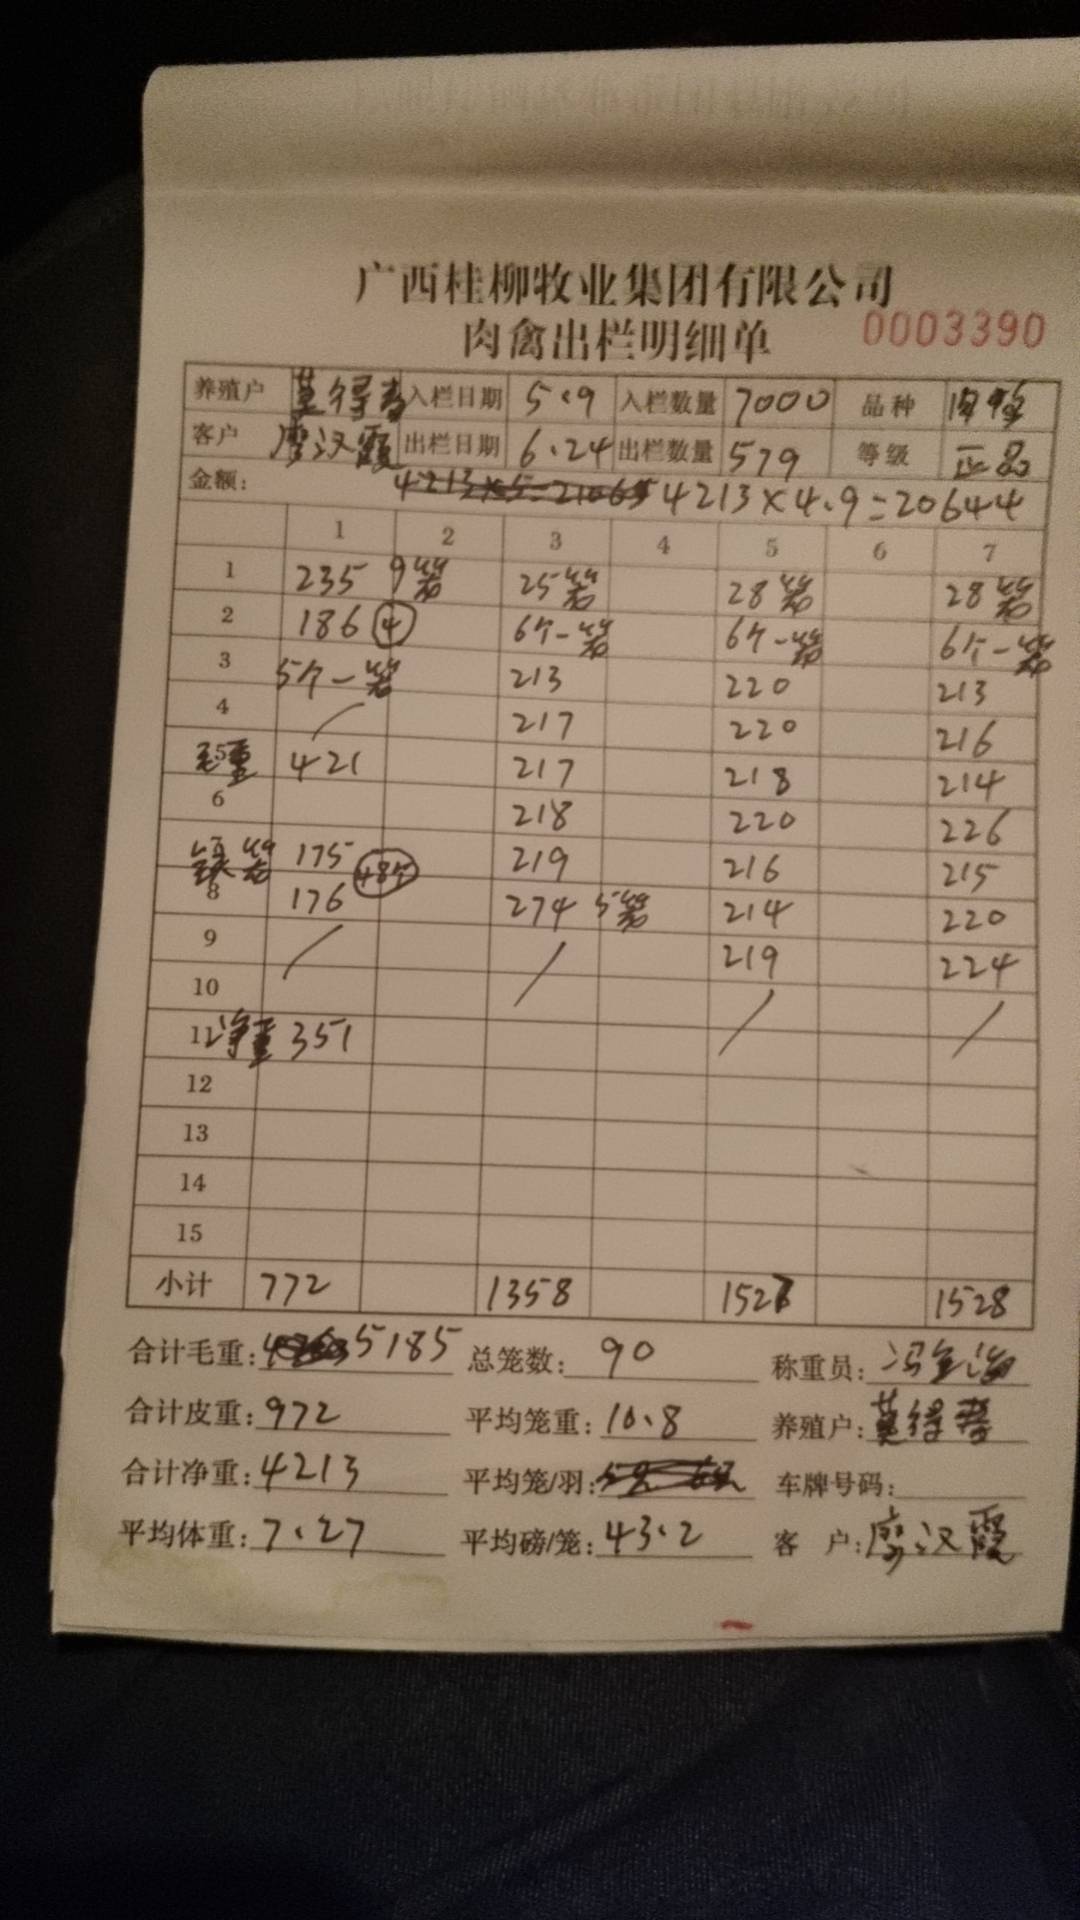 广西桂柳牧业集团有限公司
肉禽出栏明细单 0003390
养殖户 莫得春 入栏日期 5.9 入栏数量 7000 品种 肉鸭
客户 廖汉霞 出栏日期 6.24 出栏数量 579 等级 正品
金额: 4213×5=21065 4213×4.9=20644
1 2 3 4 5 6 7
1 235 9笼 25笼 28笼 28笼
2 186 4 6个一笼 6个一笼 6个一笼
3 5个一笼 213 220 213
4 217 220 216
5 毛重 421 217 218 214
6 218 220 226
175 485 219 216 215
8 176 274 5笼 214 220
9 219 224
10
11 净重 351
12
13
14
15
小计 772 1358 1527 1528
合计毛重: 5185 总笼数: 90 称重员:
合计皮重: 972 平均笼重: 10.8 养殖户: 莫得春
合计净重: 4213 平均笼/羽: 车牌号码:
平均体重: 7.27 平均磅/笼: 43.2 客 户: 廖汉霞